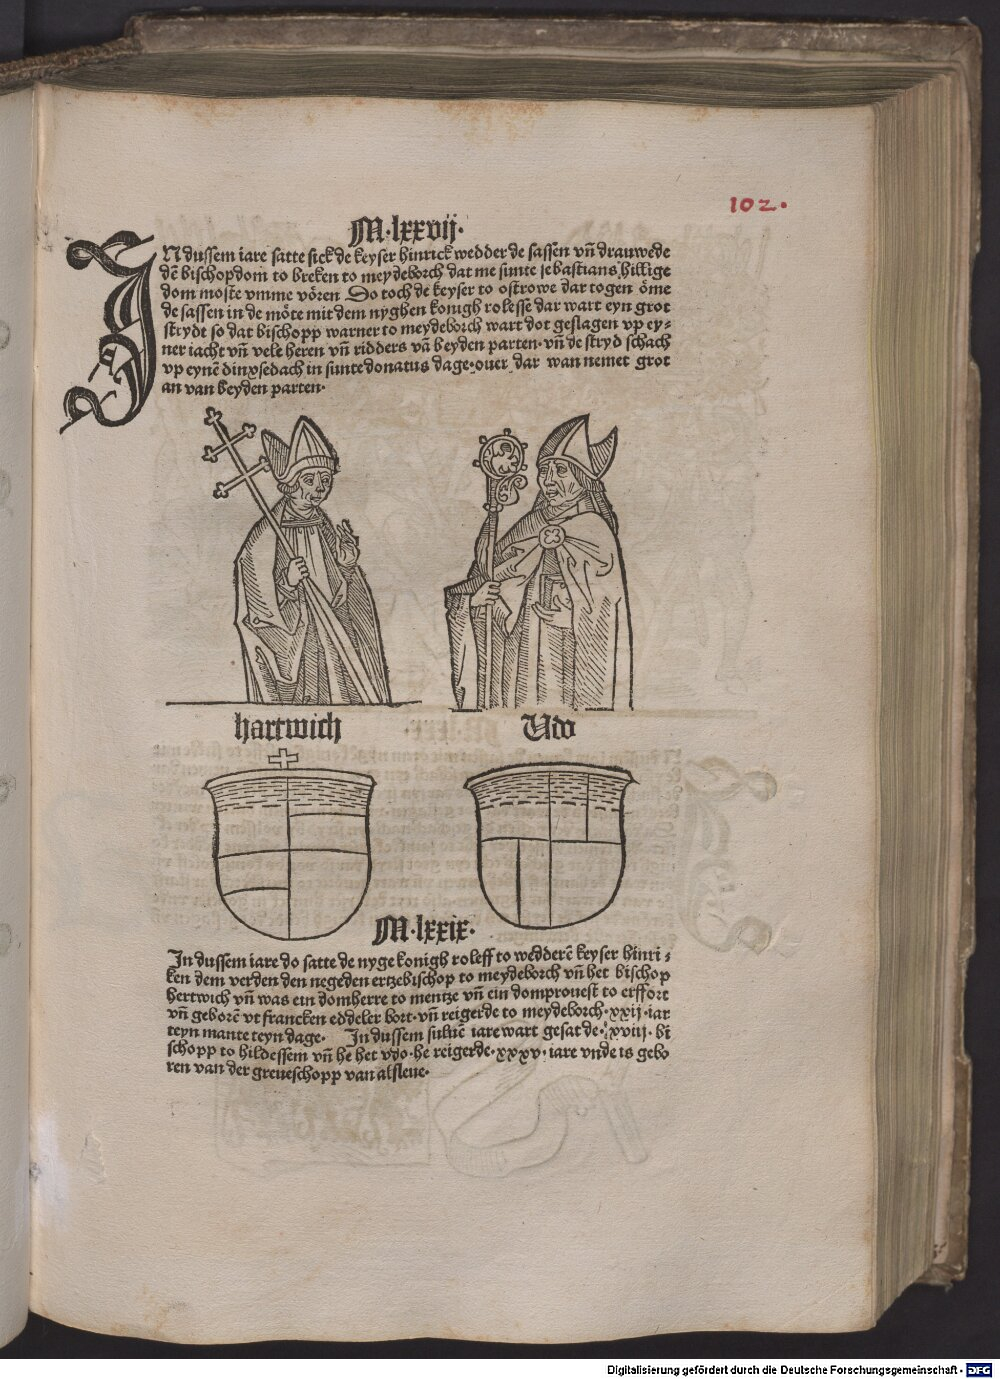 102.
M·lxxvij·
IN dussem iare satte sick de keyser hinrick wedder de sassen vn̄ drauwede
dē bischopdom to breken to meydeborch dat me sunte sebastians hillige
dom moste vmme vören Do toch de keyser to ostrowe dar togen öme
de sassen in de möte mit dem nyghen konigh rolesse dar wart eyn grot
strydt so dat bischopp warner to meydeborch wart dot geslagen vp ey⸗
ner iacht vn̄ vele heren vn̄ ridders vā beyden parten· vn̄ de stryd schach
vp eynē dinxsedach in sunte donatus dage· ouer dar wan nemet grot
an van beyden parten·
hartwich Udo
M·lxxix·
In dussem iare do satte de nyge konigh roleff to wedderē keyser hinri⸗
ken dem verden den negeden ertzebischop to meydeborch vn̄ het bischop
hertwich vn̄ was ein domherre to mentze vn̄ ein domprouest to erffort
vn̄ geborē vt francken eddeler bort· vn̄ reigerde to meydeborch· xxij· iar
teyn mante teyn dage· In dussem suluē iare wart gesat de· xviij· bi
schopp to hildessem vn̄ he het vdo· he reigerde· xxxv· iare vnde is gebo
ren van der greueschopp van alsleue·
Digitalisierung gefördert durch die Deutsche Forschungsgemeinschaft · DFG